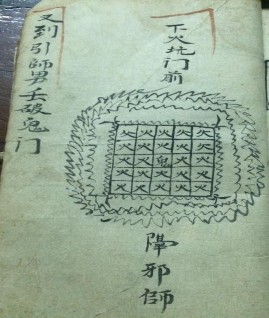 下火坑门前
火火火火火
火火火火火
火火鬼火火
火火火火火
火火火火火
邪师
又到引師男壬破鬼门